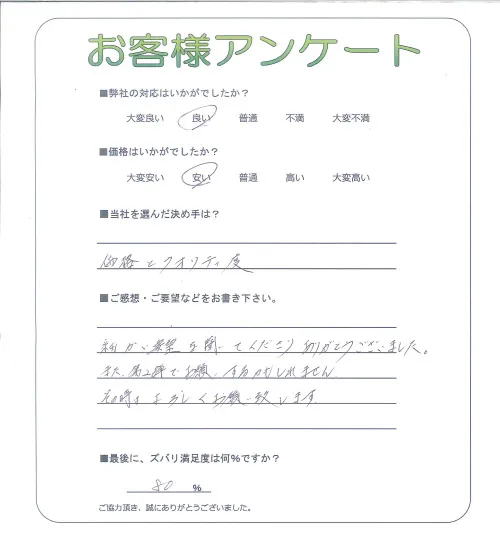 お客様アンケート
■弊社の対応はいかがでしたか？
大変良い 良い 普通 不満 大変不満
■価格はいかがでしたか？
大変安い 安い 普通 高い 大変高い
■当社を選んだ決め手は？
価格とクオリティ度
■ご感想・ご要望などをお書き下さい。
要望を聞いてくださりありがとうございました。
また、第2弾でお願いするかもしれません
その時はよろしくお願い致します
■最後に、ズバリ満足度は何％ですか？
80 %
ご協力頂き、誠にありがとうございました。